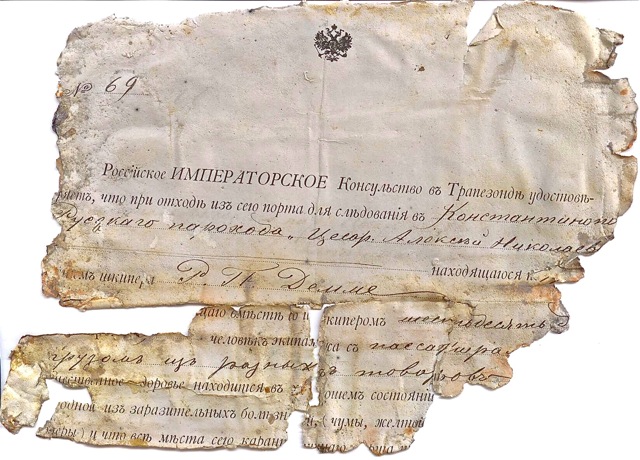 № 69
Россiйское ИМПЕРАТОРСКОЕ Консульство въ Трапезондѣ удостовѣ-
ряетъ, что при отходѣ изъ сего порта для слѣдованiя въ Константинопо
Русскаго парохода „Цесар. Алексѣй Николаев
находящагося
шкипера Р. К. Демме
щаго вмѣстѣ со шкиперомъ шестьдесятъ
человѣкъ экипажа съ пассажира
грузомъ изъ разныхъ товаровъ
чественное здоровье находится въ хорошемъ состоянiи
одной изъ заразительныхъ болѣзней, (чумы, желтой
леры) и что всѣ мѣста сего